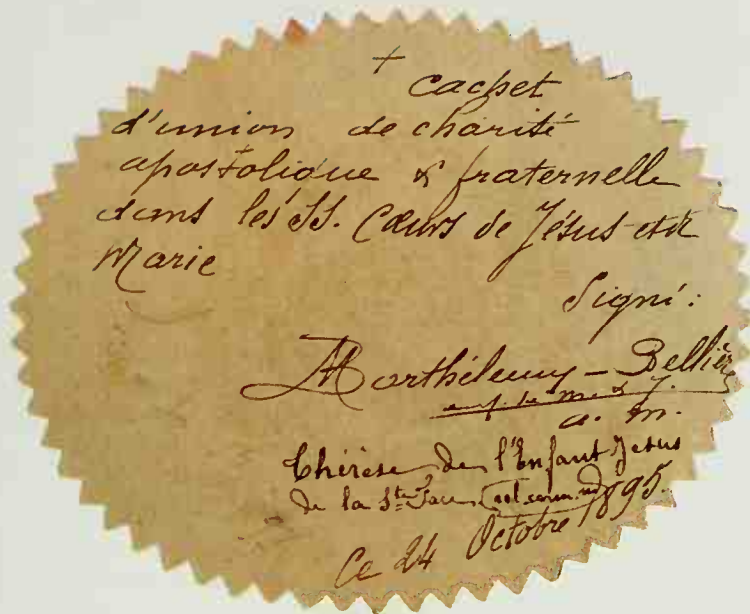 +
cachet
d'union de charité
apostolique & fraternelle
dans les SS. Cœurs de Jésus et de
Marie
Signé :
M Barthélemy - Bellière
enf. de M. & J.
a. m.
Thérèse de l'Enfant Jésus
de la Ste Face (rel. carm. ind)
Ce 24 Octobre 1895.